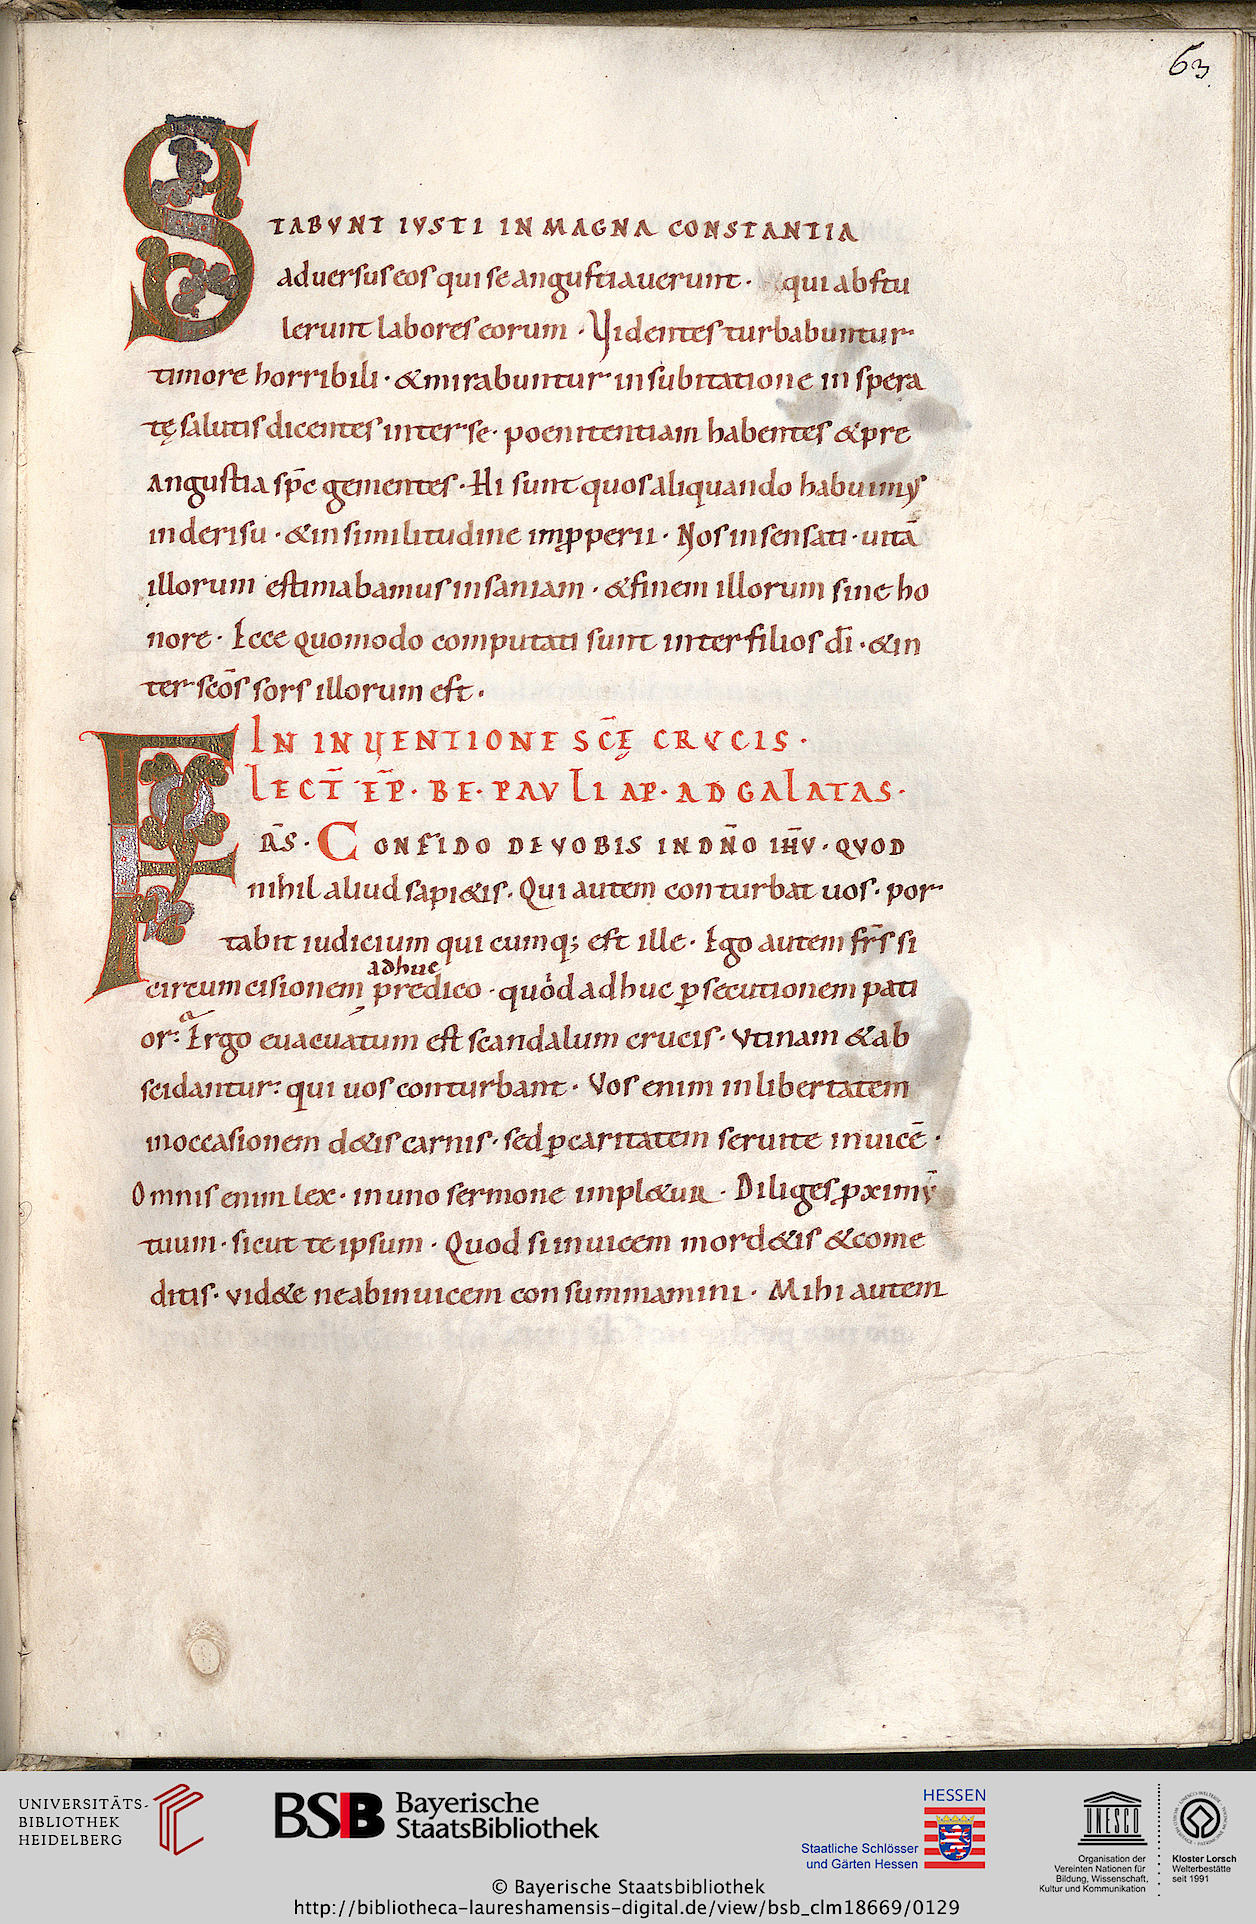 63
STABVNT IVSTI IN MAGNA CONSTANTIA
adversus eos qui se angustiaverunt · qui abstu
lerunt labores eorum · Videntes turbabuntur
timore horribili · & mirabuntur in subitatione inspera
tę salutis dicentes inter se · poenitentiam habentes & pre
angustia sp̄c gementes · Hi sunt quos aliquando habuimus
in derisu · & in similitudine imꝓperii · Nos insensati · uitā
illorum estimabamus insaniam · & finem illorum sine ho
nore · Ecce quomodo computati sunt inter filios dī · & in
ter scōs sors illorum est ·
IN INVENTIONE SC̄Ę CRVCIS ·
LECT̄ EP̄ · BE · PAVLI AP · AD GALATAS ·
FR̄S · CONFIDO DE VOBIS IN DN̄O IH̄V · QVOD
nihil aliud sapi&is · Qui autem conturbat uos · por
tabit iudicium quicumq; est ille · Ego autem fr̄s si
adhuc
circumcisionem predico · quod adhuc ꝑsecutionem pati
or · Ergo euacuatum est scandalum crucis · Vtinam & ab
scidantur : qui uos conturbant · Vos enim in libertatem
in occasionem d&is carnis · sed ꝑ caritatem seruite inuicē ·
Omnis enim lex · in uno sermone impl&ur · Diliges ꝓximū
tuum · sicut te ipsum · Quod si inuicem mord&is & come
ditis · vid&e ne ab inuicem consummamini · Mihi autem
UNIVERSITÄTS-
BIBLIOTHEK
HEIDELBERG
BSB Bayerische
StaatsBibliothek
HESSEN
Staatliche Schlösser
und Gärten Hessen
UNESCO
Organisation der
Vereinten Nationen für
Bildung, Wissenschaft,
Kultur und Kommunikation
Kloster Lorsch
Welterbestätte
seit 1991
© Bayerische Staatsbibliothek
http://bibliotheca-laureshamensis-digital.de/view/bsb_clm18669/0129